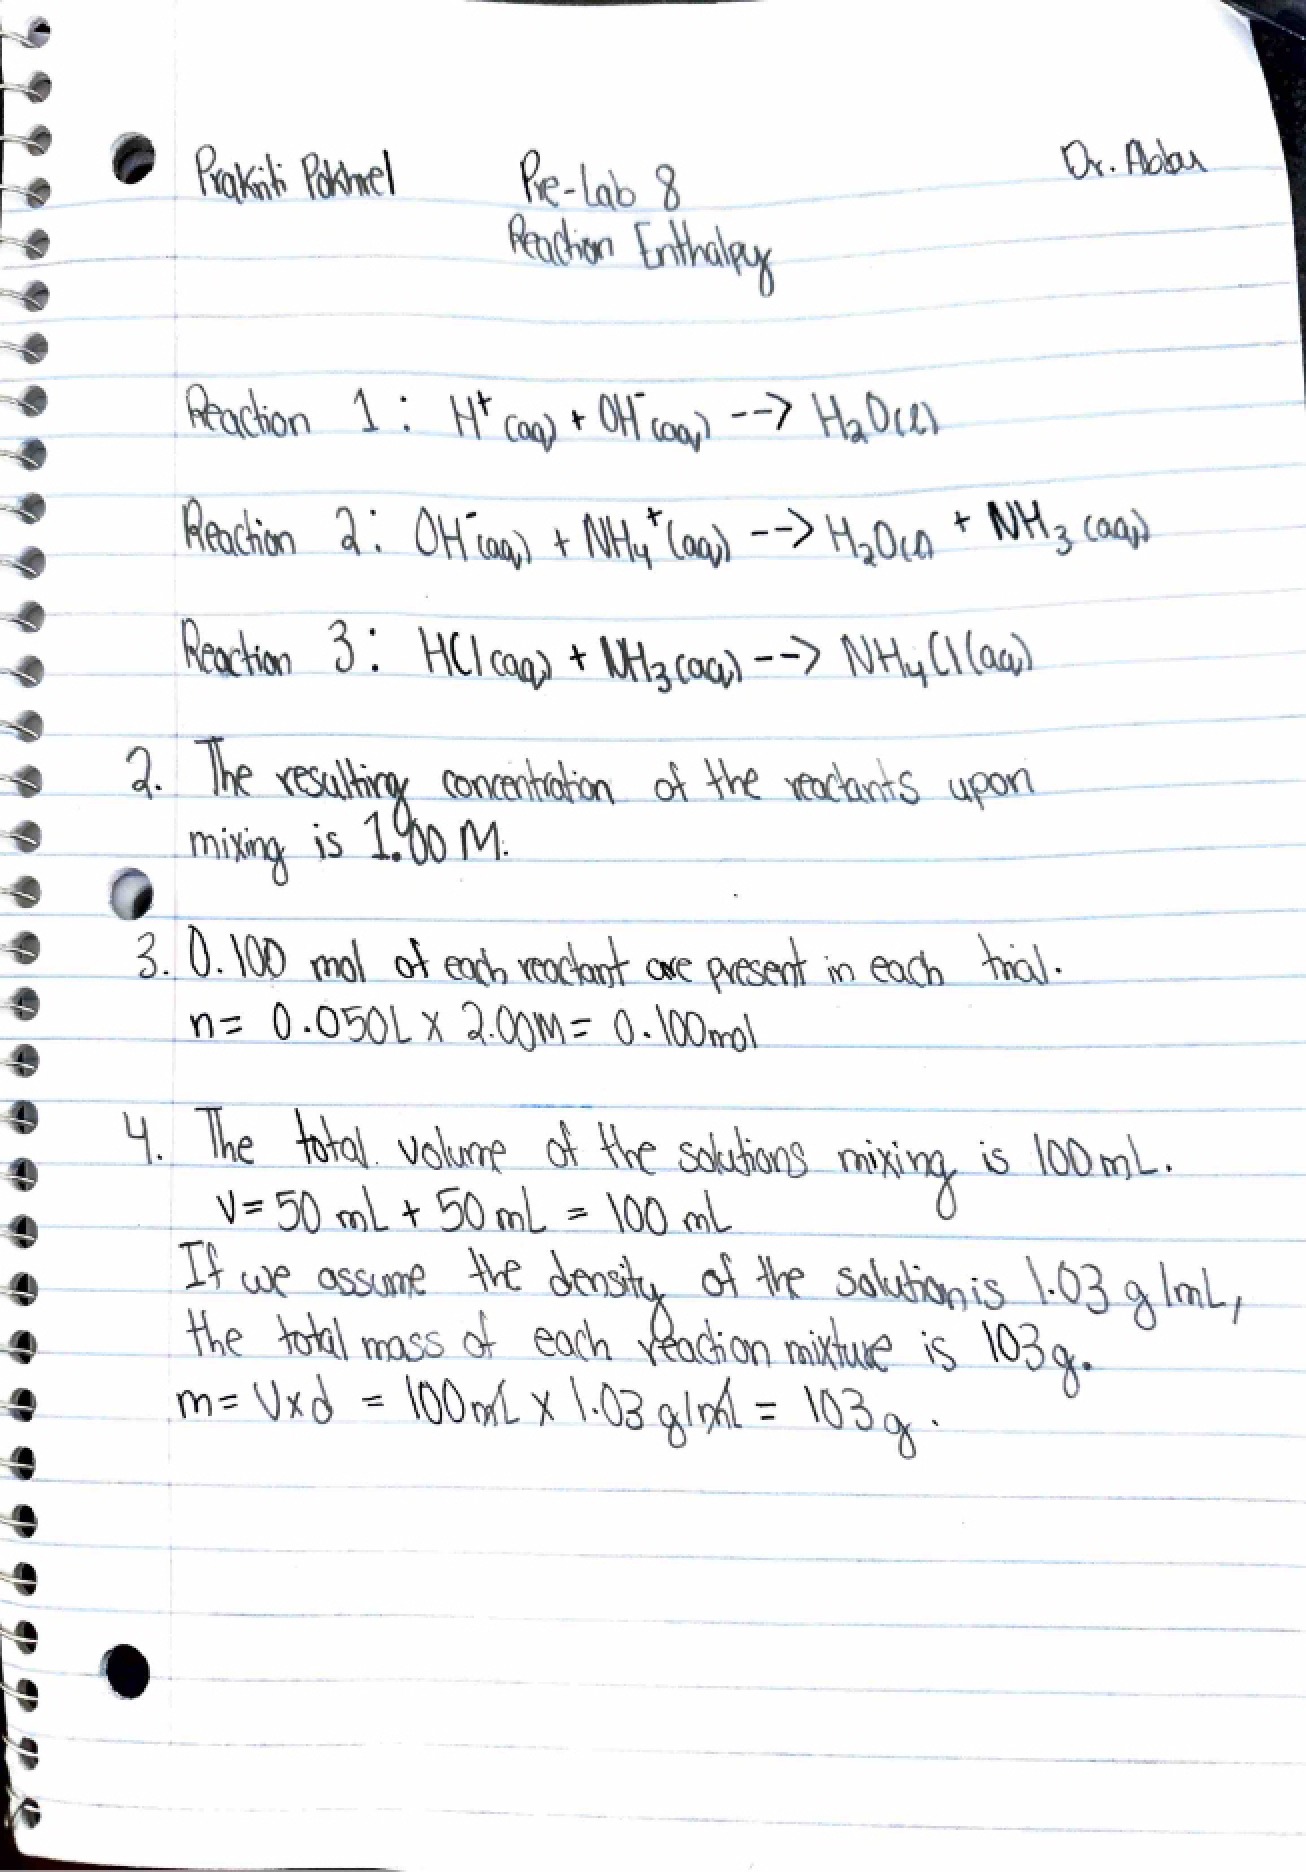 Prakriti Pokhrel Pre-Lab 8 Dr. Abbu
Reaction Enthalpy
Reaction 1: H⁺(aq) + OH⁻(aq) --> H₂O(l)
Reaction 2: OH⁻(aq) + NH₄⁺(aq) --> H₂O(l) + NH₃(aq)
Reaction 3: HCl(aq) + NH₃(aq) --> NH₄Cl(aq)
2. The resulting concentration of the reactants upon
mixing is 1.00 M.
3. 0.100 mol of each reactant are present in each trial.
n= 0.050L x 2.00M= 0.100mol
4. The total volume of the solutions mixing is 100mL.
V= 50 mL + 50 mL = 100 mL
If we assume the density of the solution is 1.03 g/mL,
the total mass of each reaction mixture is 103g.
m= Vxd = 100mL x 1.03 g/mL = 103g.